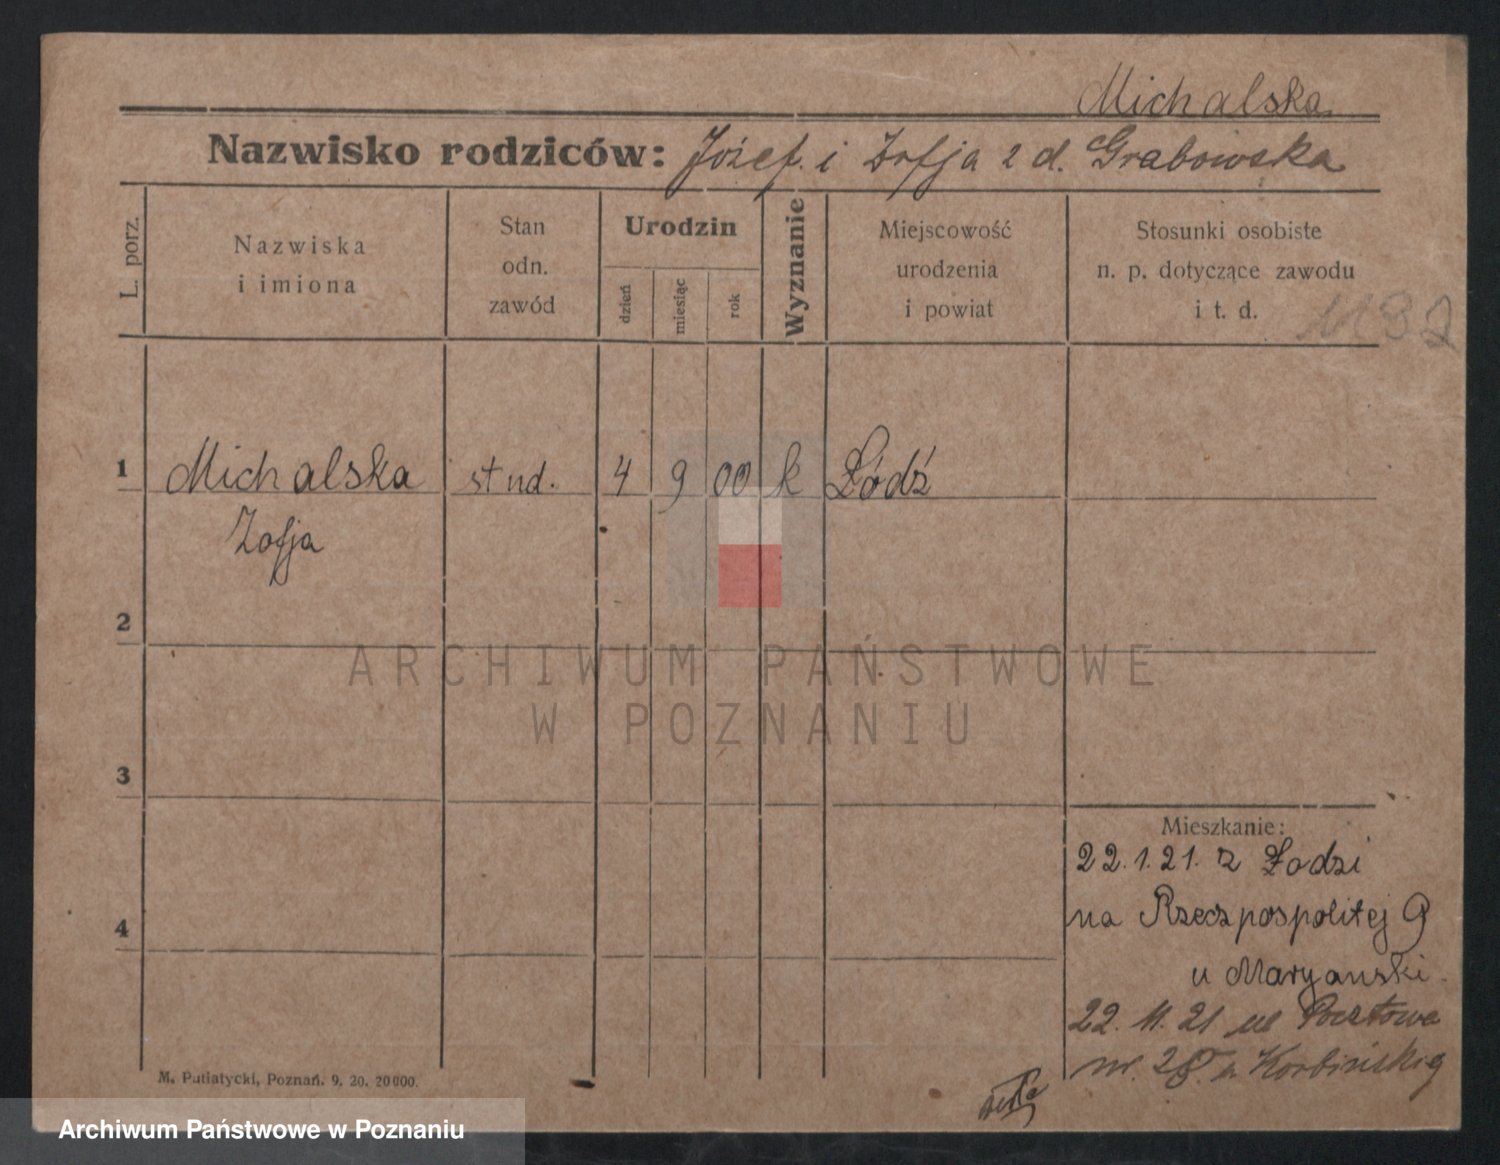 Michalska
Nazwisko rodziców: Józef. i Zofja z d. Grabowska
L. porz.
Nazwiska
i imiona
Stan
odn.
zawód
Urodzin
dzień
miesiąc
rok
Wyznanie
Miejscowość
urodzenia
i powiat
Stosunki osobiste
n. p. dotyczące zawodu
i t. d.
1 Michalska stud. 4 9 00 k Łódź
Zofja
2
ARCHIWUM PAŃSTWOWE
W POZNANIU
3
Mieszkanie:
22.1.21. z Łodzi
na Rzeczpospolitej 9
4
u Maryanski.
22. 11. 21 ul Pocztowa
nr. 28. u Korbińskiej
M. Putiatycki, Poznań. 9. 20. 20000.
Archiwum Państwowe w Poznaniu